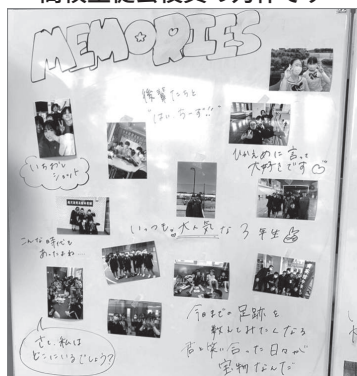 MEMORIES
後輩たちと
"はいちーず!!"
いちおし
ショット
ひかえめに言って
大好きです♡
いっつも大人気な3年生
こんな時代も
あったよね…
さて、私は
どこにいるでしょう?
今までの足跡を
なんてみたくなる
笑い合った日々が
宝物なんだ